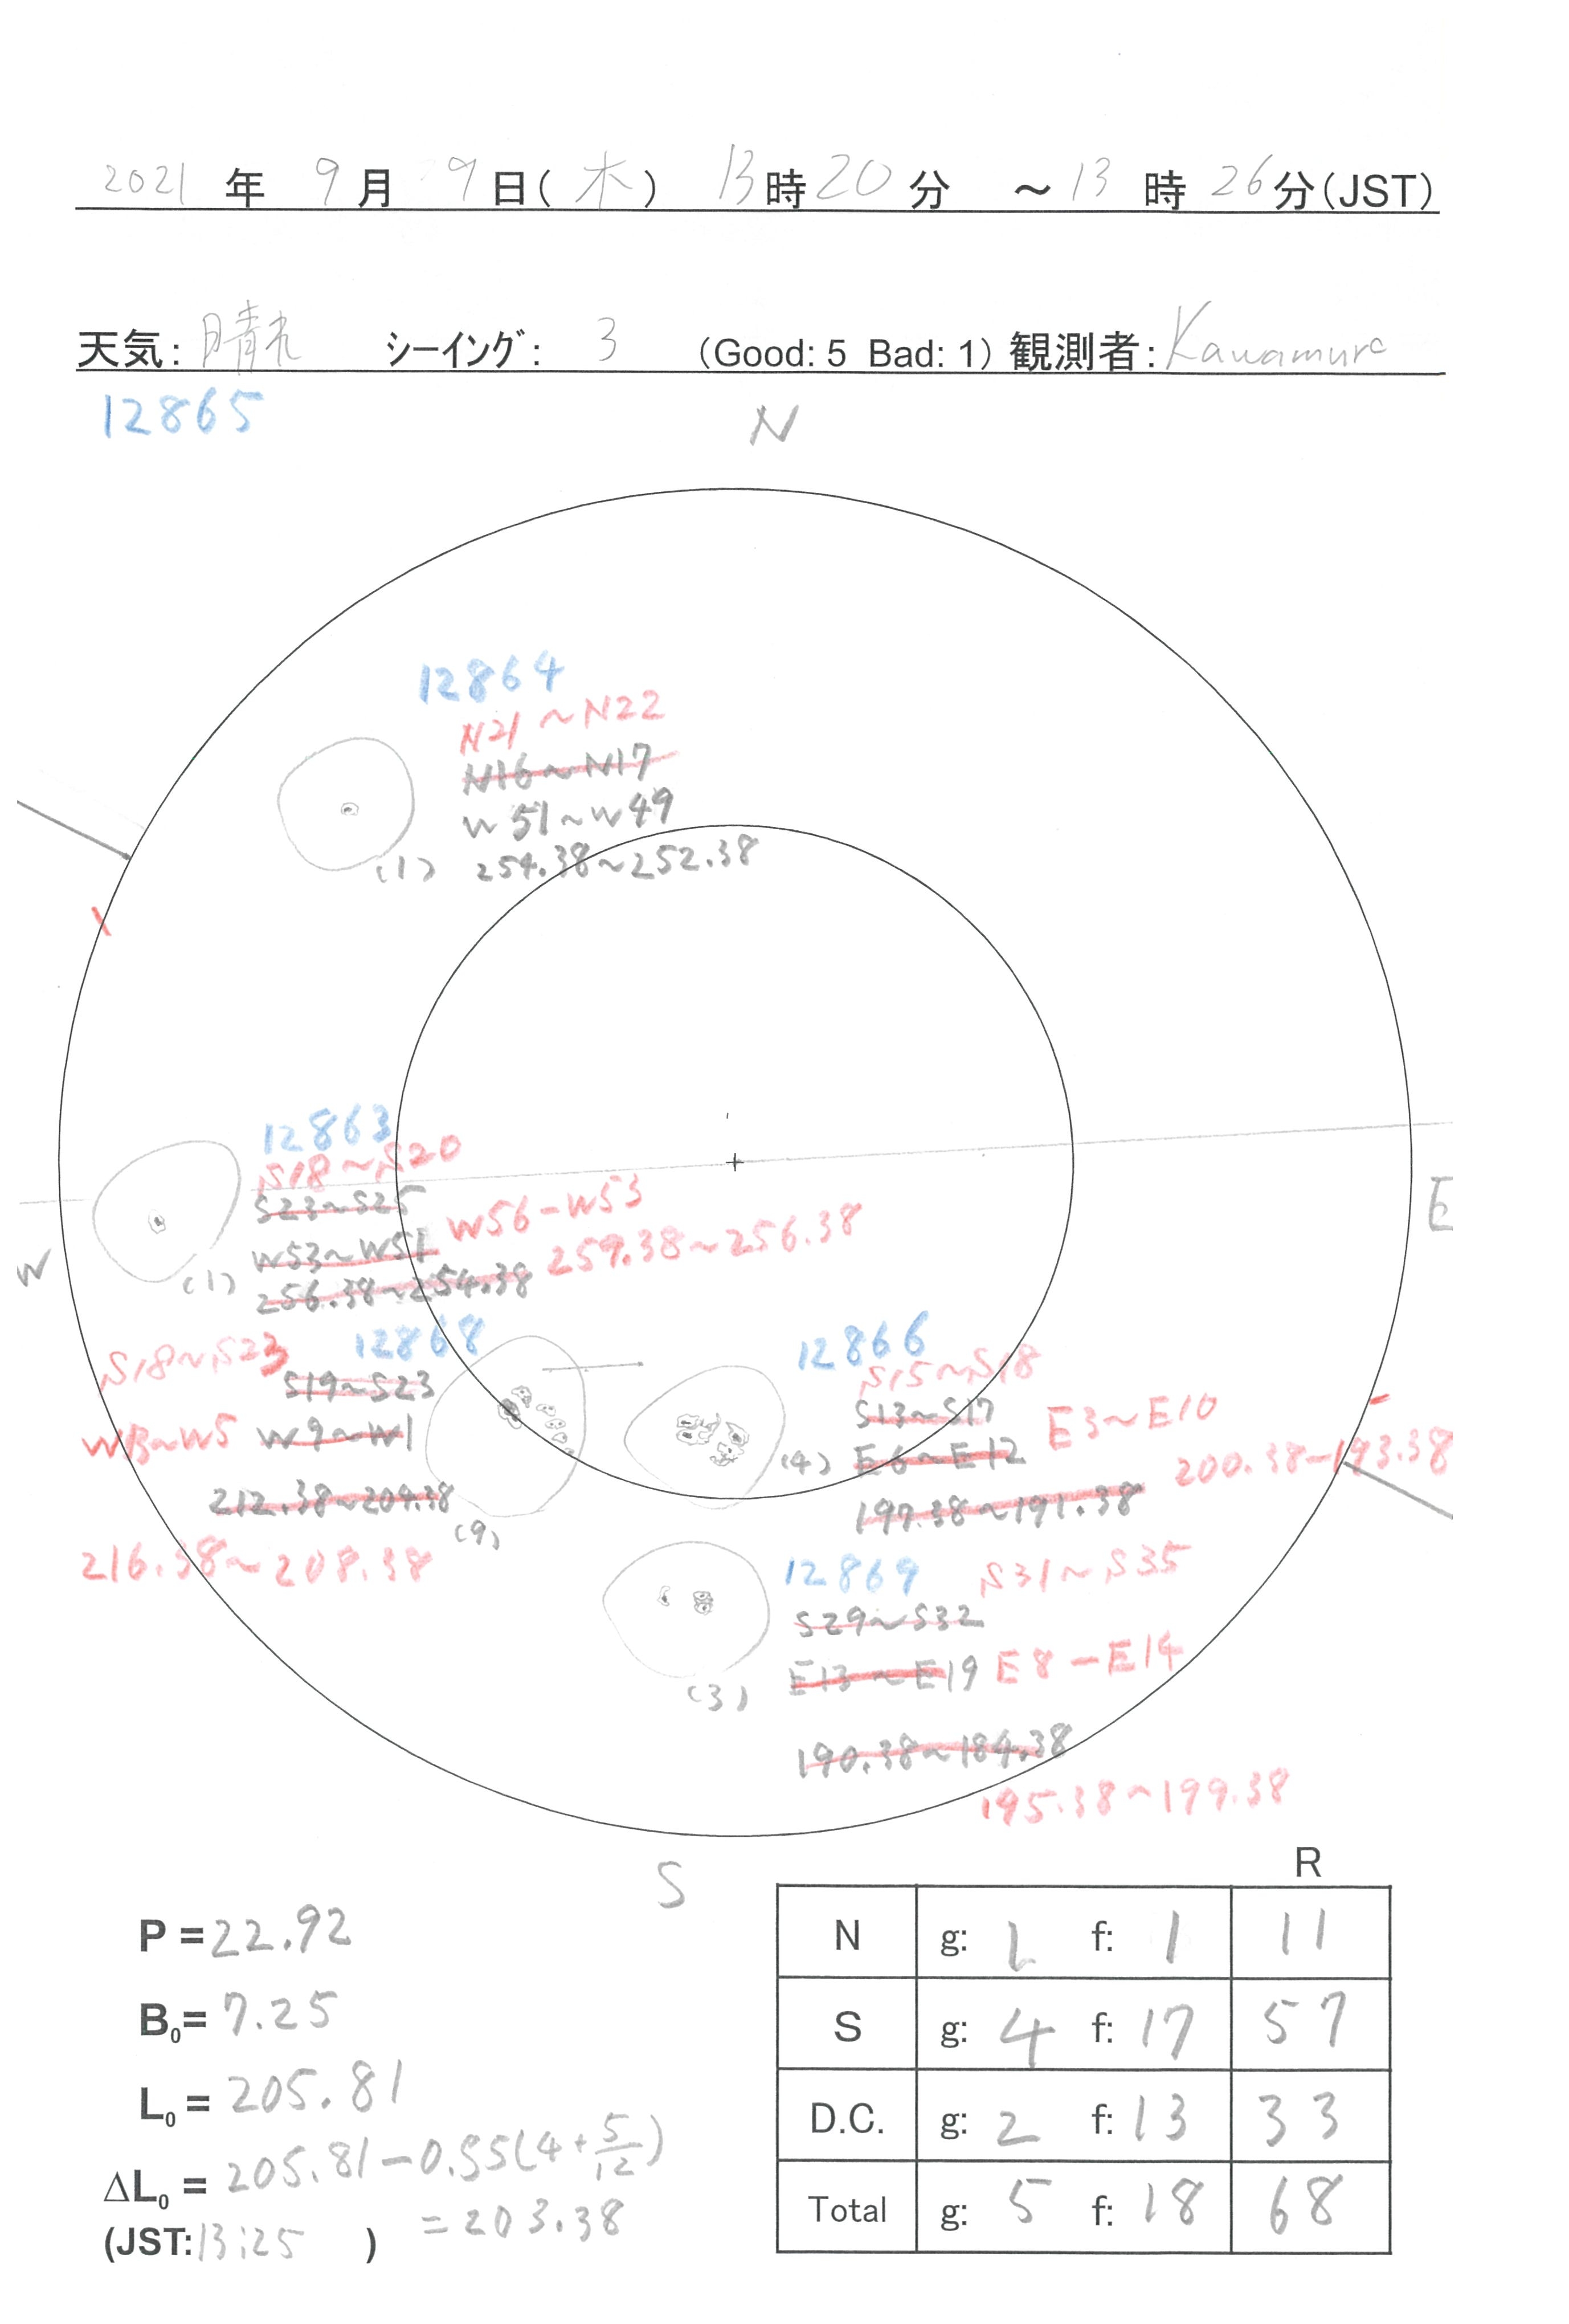 2021 年 9月 9日(木) 13時20分 ～13時26分(JST)
天気: 晴れ シーイング: 3 (Good: 5 Bad: 1) 観測者: Kawamura
12865
N
12864
N21～N22
N16～N17
W51～W49
(1) 254.38～252.38
12863
S18～S20
S23～S25
W53～W51 W56-W53
(1) 256.38～254.38 259.38～256.38
E
W
12868
S18～S23
S19～S23
W13～W5 W9～W1
212.38～204.38
(9)
216.38～208.38
12866
S15～S18
S13～S17
(4) E6～E12 E3～E10
197.38～191.38 200.38-193.38
12869 S31～S35
S29～S32
E13～E19 E8-E14
(3)
190.38～184.38
195.38～199.38
S
P=22.92
B0=7.25
L0=205.81
ΔL0=205.81-0.55(4+5/12)
(JST:13:25 ) =203.38
R
N g: 1 f: 1 11
S g: 4 f: 17 57
D.C. g: 2 f: 13 33
Total g: 5 f: 18 68